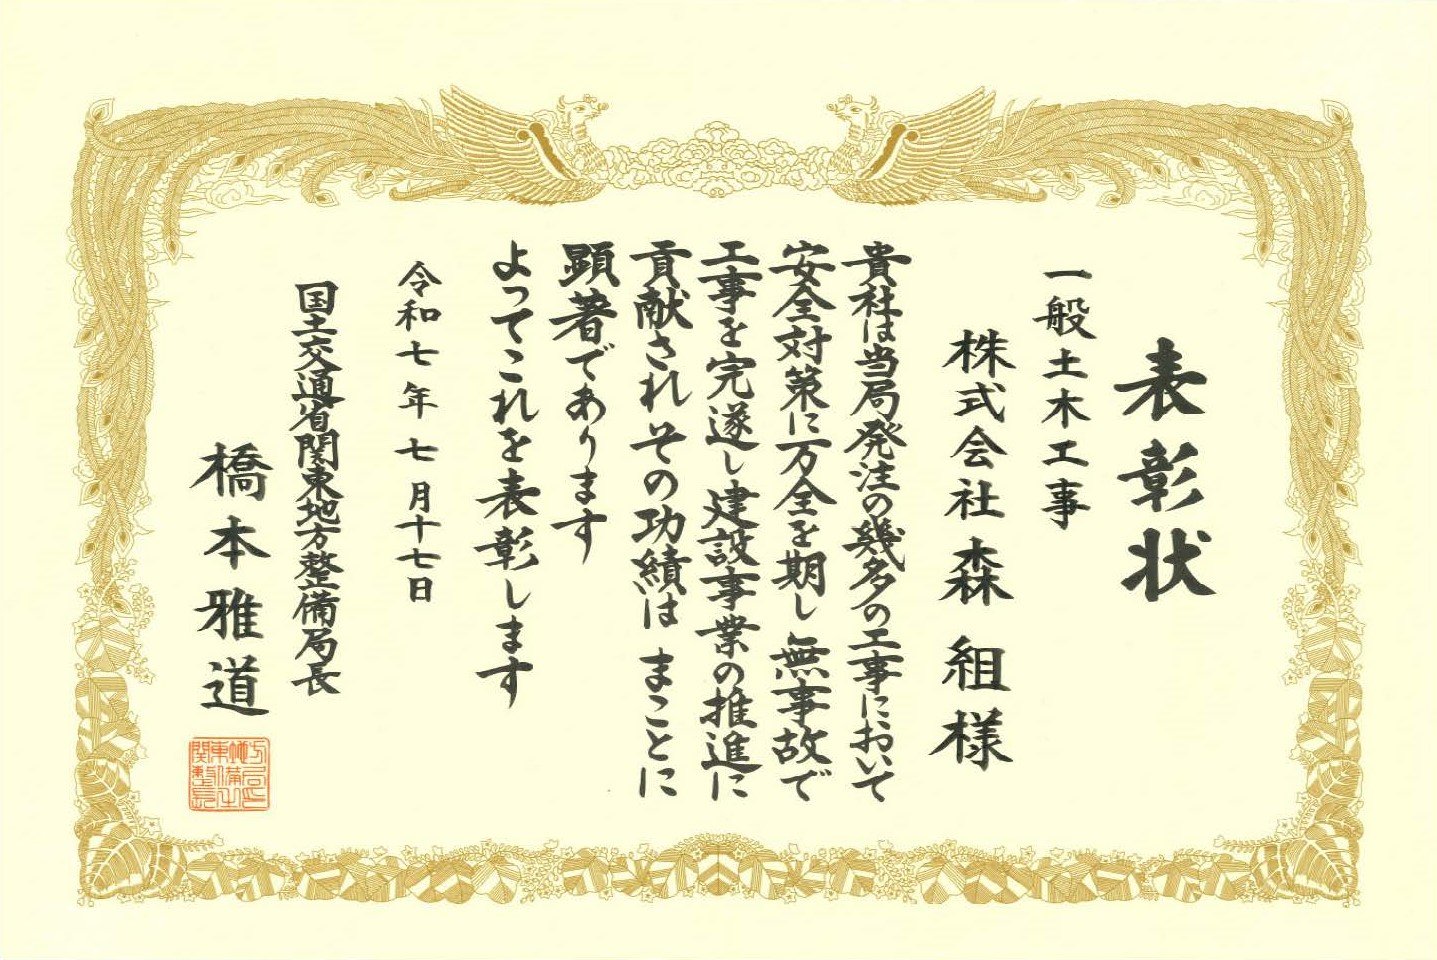 表彰状
一般土木工事
株式会社森組様
貴社は当局発注の幾多の工事において
安全対策に万全を期し無事故で
工事を完遂し建設事業の推進に
貢献されその功績はまことに
顕著であります
よってこれを表彰します
令和七年七月十七日
国土交通省関東地方整備局長
橋本雅道